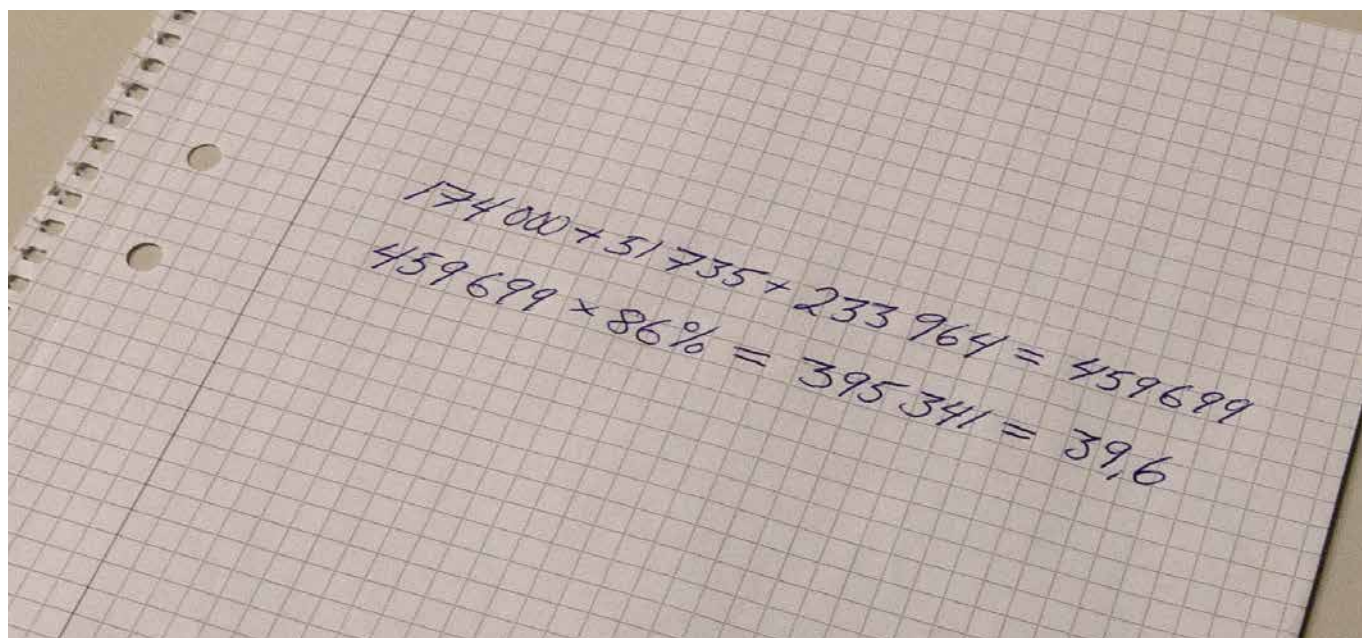 174 000 + 51 735 + 233 964 = 459699
459 699 × 86% = 395 341 = 39,6